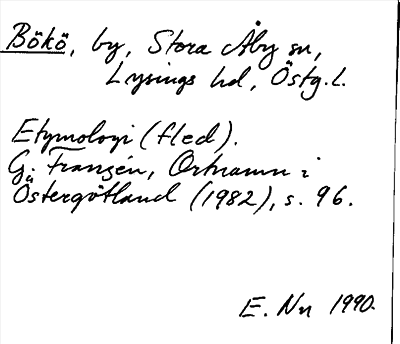 Bökö, by, Stora Åby sn,
Lysings hd, Östg.l.
Etymologi (fled).
G. Franzén, Ortnamn i
Östergötland (1982), s. 96.
E. Nn 1990.